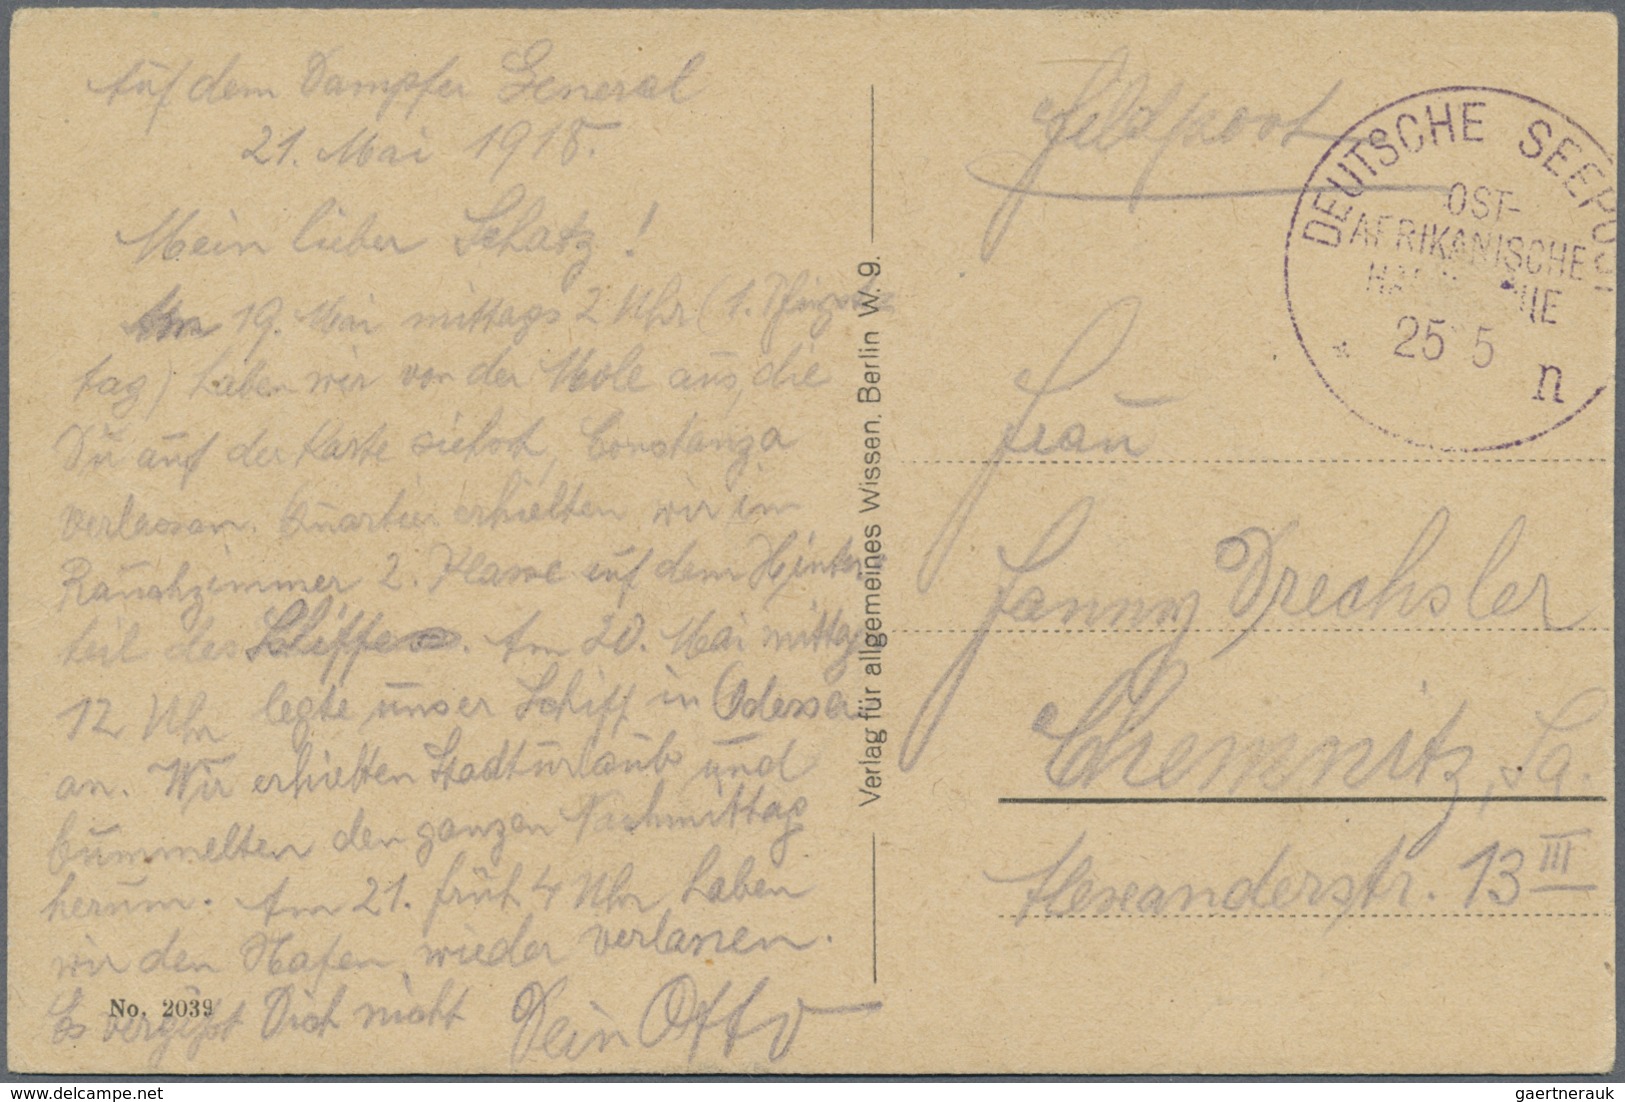 Auf dem Dampfer General
21. Mai 1918.
Mein lieber Schatz!
Am 19. Mai mittags 2 Uhr (1. Pfingst-
tag) haben wir von der Mole aus, die
Du auf der Karte siehst, Constanza
verlassen. Quartier erhielten wir im
Rauchzimmer 2. Klasse auf dem Hinter-
teil des Schiffes. Am 20. Mai mittag
12 Uhr legte unser Schiff in Odessa
an. Wir erhielten Stadturlaub und
bummelten den ganzen Nachmittag
herum. Am 21. früh 4 Uhr haben
wir den Hafen wieder verlassen.
Es vergißt Dich nicht Dein Otto
No. 2039
Verlag für allgemeines Wissen. Berlin W. 9.
Feldpost
DEUTSCHE SEEPOST
OST-
AFRIKANISCHE
25 5
n
Frau
Fanny Drechsler
Chemnitz, Sa.
Alexanderstr. 13 III
www.delcampe.net
gaertnerauk